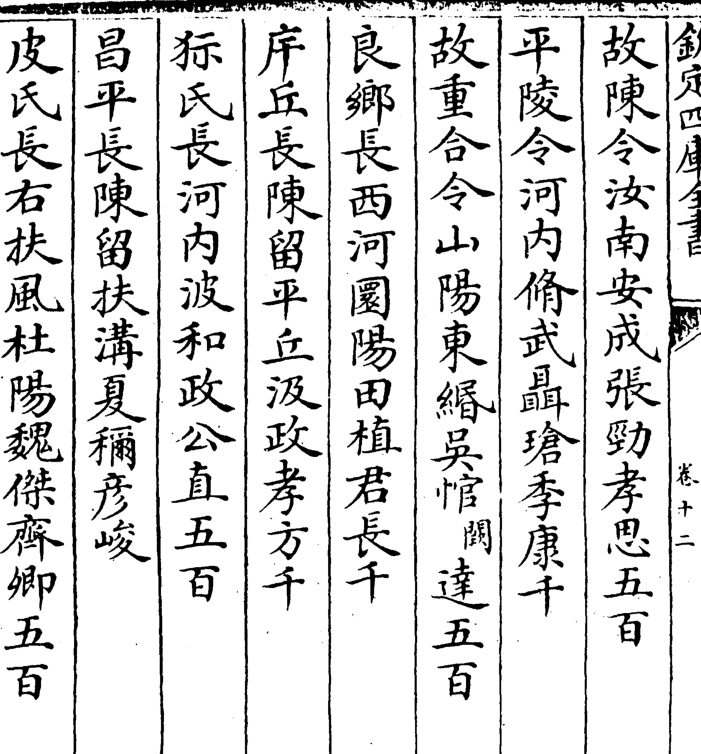 欽定四庫全書
卷十二
故陳令汝南安成張勁孝思五百
平陵令河内脩武聶瑲季康千
故重合令山陽東緡吳悺闕達五百
良鄉長西河圜陽田植君長千
庠丘長陳留平丘汲政孝方千
狋氏長河内波和政公直五百
昌平長陳留扶溝夏穪彥峻
皮氏長右扶風杜陽魏傑齊卿五百